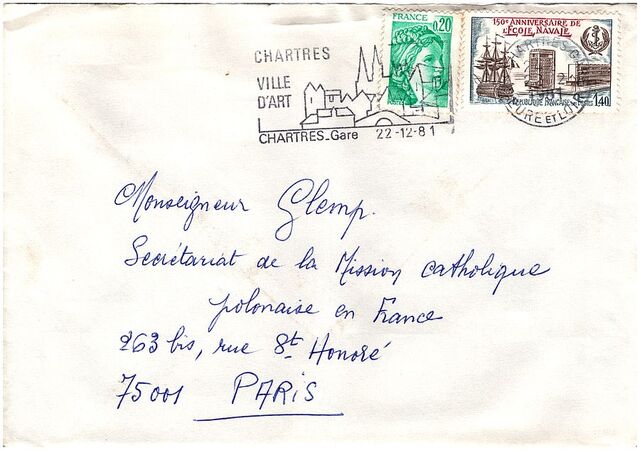 FRANCE
0,20
150e ANNIVERSAIRE DE
L'ÉCOLE NAVALE
RÉPUBLIQUE FRANÇAISE
1,40
CHARTRES
VILLE
D'ART
CHARTRES-Gare 22-12-81
1981
EURE ET LOIR
Monseigneur Glemp.
Secrétariat de la Mission catholique
polonaise en France
263 bis, rue St Honoré
75001 PARIS